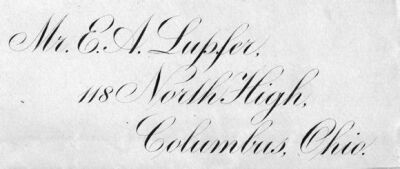 Mr. E. A. Lupfer,
118 North High,
Columbus, Ohio.